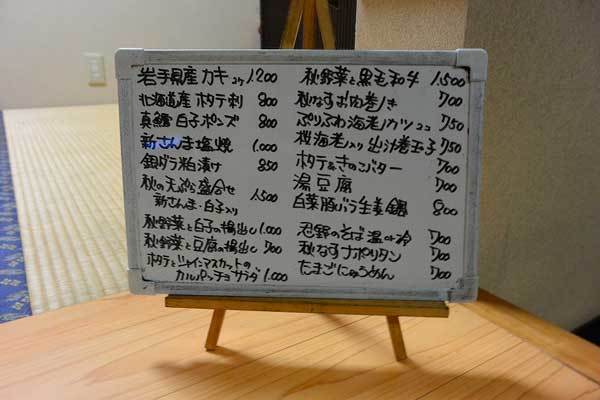 岩手県産カキ 2ヶ 1200
北海道産 ホタテ刺 800
真鱈 白子ポンズ 800
新さんま塩焼 1.000
銀ダラ粕漬け 850
秋の天ぷら盛合せ
新さんま・白子入り 1500
秋野菜と白子の揚出し 1.000
秋野菜と豆腐の揚出し 700
ホタテとシャインマスカットの
カルパッチョサラダ 1.000
秋野菜と黒毛和牛 1500
秋なすお肉巻き 700
ぷりふわ海老カツ 2コ 750
桜海老入り出汁巻玉子 750
ホタテときのこバター 700
湯豆腐 700
白菜豚バラ生姜鍋 800
忍野のそば 温or冷 700
秋なすナポリタン 700
たまごにゅうめん 700